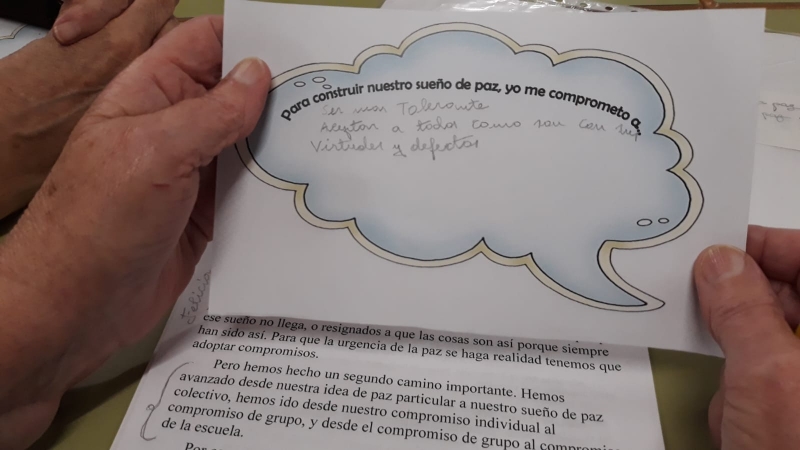 Para construir nuestro sueño de paz, yo me comprometo a:
Ser mas Tolerante
Aceptar a todos como son con sus
Virtudes y defectos
ese sueño no llega, o resignados a que las cosas son así porque siempre
han sido así. Para que la urgencia de la paz se haga realidad tenemos que
adoptar compromisos.
Pero hemos hecho un segundo camino importante. Hemos
avanzado desde nuestra idea de paz particular a nuestro sueño de paz
colectivo, hemos ido desde nuestro compromiso individual al
compromiso de grupo, y desde el compromiso de grupo al compromiso
de la escuela.
Por